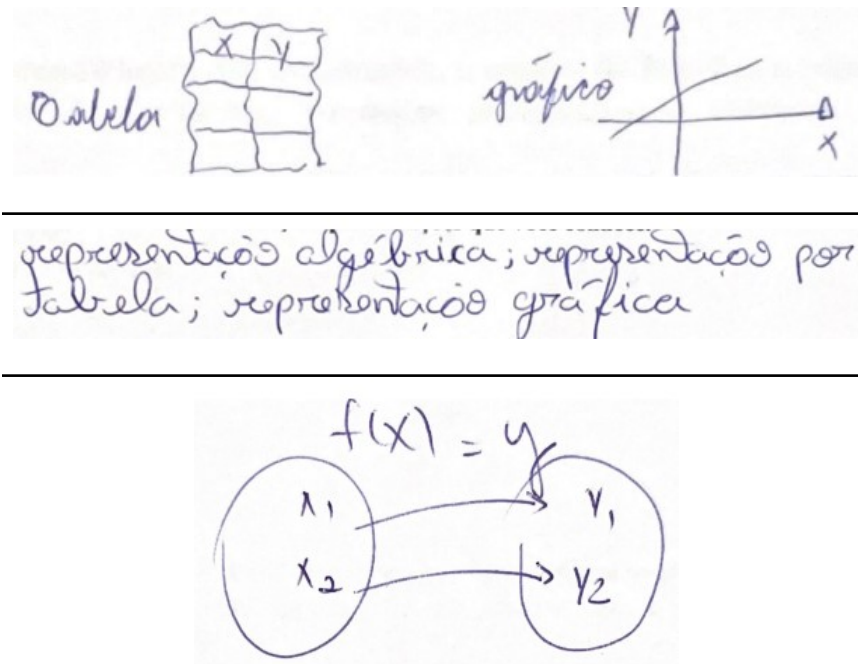 Tabela
X Y
gráfico
Y
X
representação algébrica; representação por
tabela; representação gráfica
f(x) = y
x1 y1
x2 y2